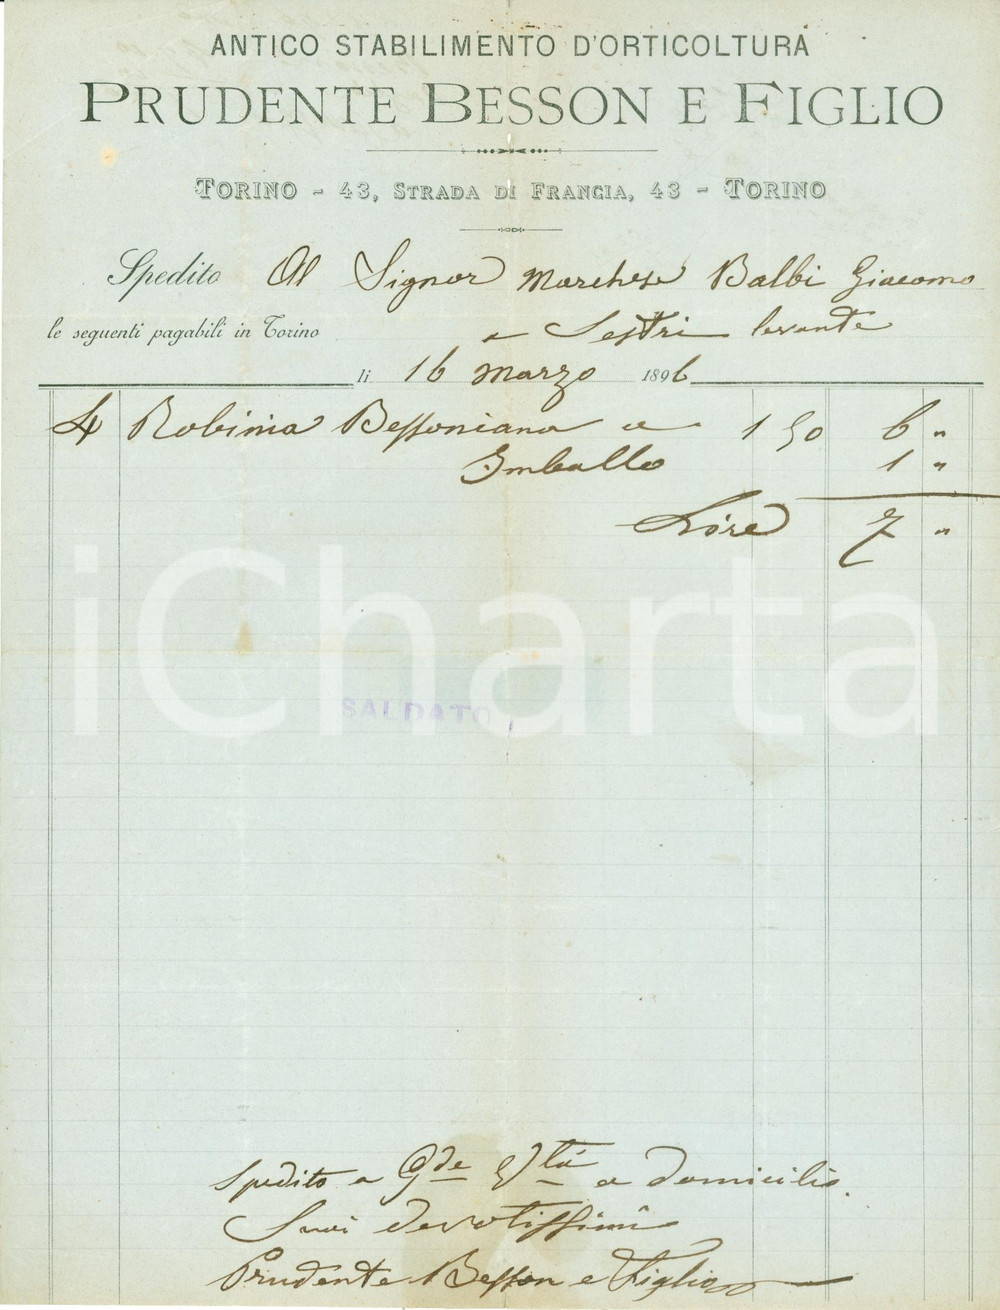 ANTICO STABILIMENTO D'ORTICOLTURA
PRUDENTE BESSON E FIGLIO
TORINO - 43, STRADA DI FRANCIA, 43 - TORINO
Spedito Al Signor Marchese Balbi Giacomo
le seguenti pagabili in Torino a Sestri levante
li 16 Marzo 1896
4 Robinia Bessoniana a 1 50 6 "
Imballo 1 "
Lire 7 "
iCharta
SALDATO
Spedito a Gde Vtà a domicilio.
Suoi devotissimi
Prudente Besson e Figlio